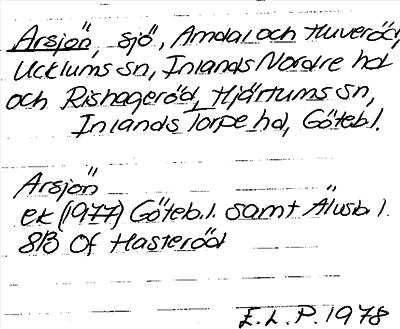 Arsjön, sjö, Amdal och Huveröd,
Ucklums sn, Inlands Nordre hd
och Rishageröd, Hjärtums sn,
Inlands Torpe hd, Göteb.l.
Arsjön
ek (1977) Göteb.l. samt Älvsb l.
8B 0f Hasteröd
E.L.P. 1978